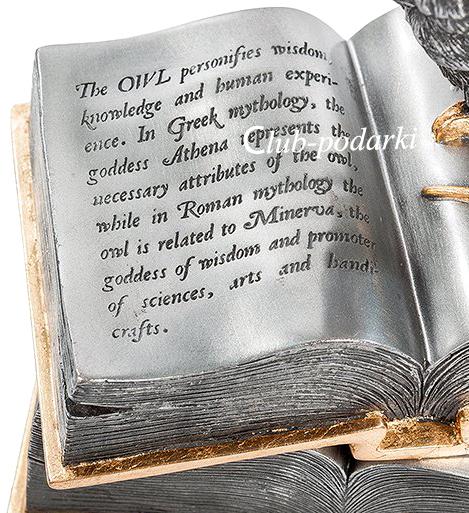 The OWL personifies wisdom,
knowledge and human experi-
ence. In Greek mythology, the
goddess Athena epresents the
necessary attributes of the owl,
while in Roman mythology the
owl is related to Minerva, the
goddess of wisdom and promoter
of sciences, arts and handi-
crafts.
Club-podarki